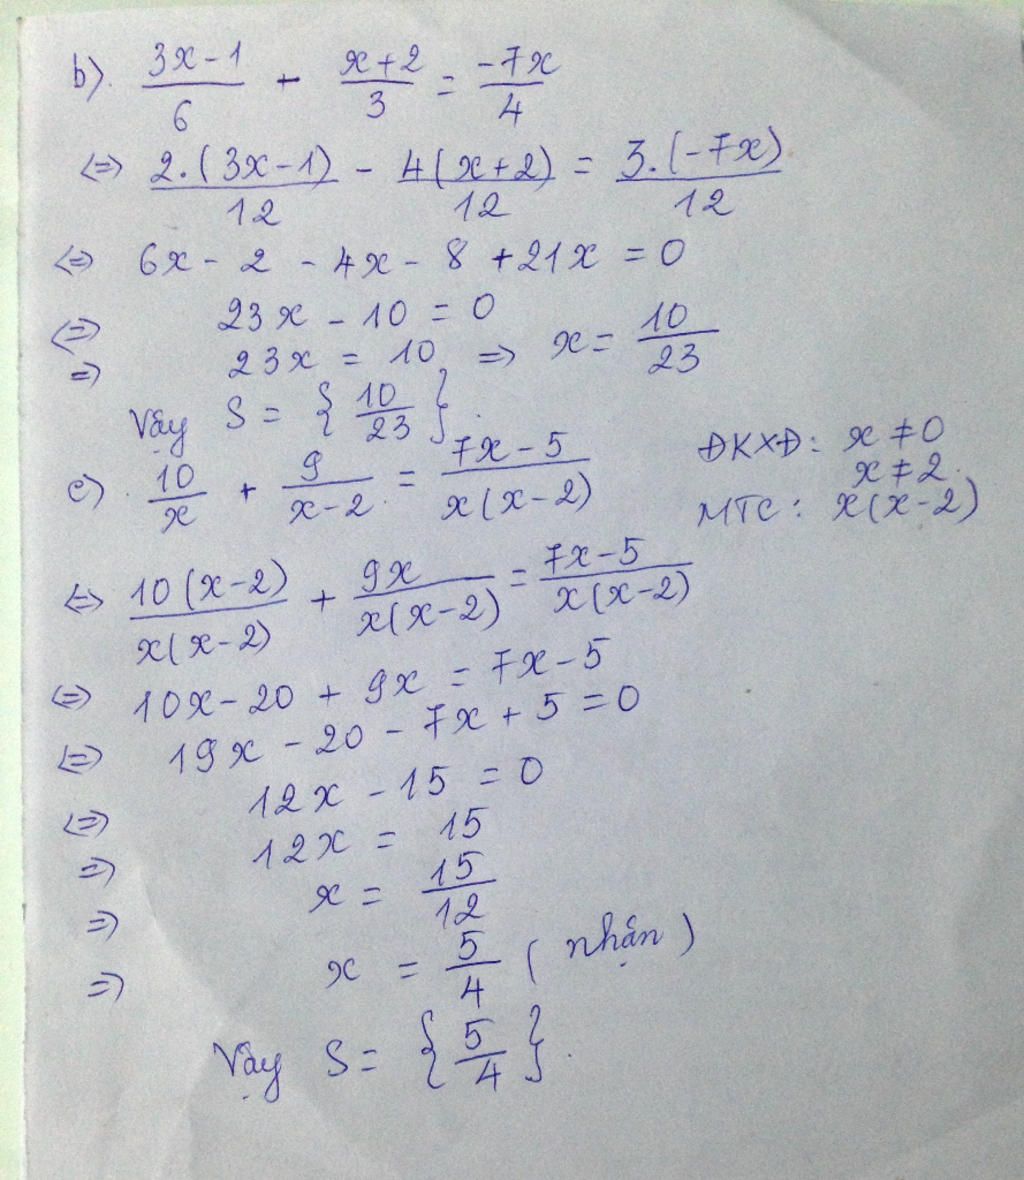 b). \frac{3x-1}{6} - \frac{x+2}{3} = \frac{-7x}{4}
⇔ \frac{2.(3x-1)}{12} - \frac{4(x+2)}{12} = \frac{3.(-7x)}{12}
⇔ 6x - 2 - 4x - 8 + 21x = 0
⇔ 23x - 10 = 0
⇒ 23x = 10 ⇒ x = \frac{10}{23}
Vậy S = {\frac{10}{23}}.
c). \frac{10}{x} + \frac{9}{x-2} = \frac{7x-5}{x(x-2)}
ĐKXĐ: x ≠ 0
x ≠ 2.
MTC: x(x-2)
⇔ \frac{10(x-2)}{x(x-2)} + \frac{9x}{x(x-2)} = \frac{7x-5}{x(x-2)}
⇔ 10x - 20 + 9x = 7x - 5
⇔ 19x - 20 - 7x + 5 = 0
⇔ 12x - 15 = 0
⇒ 12x = 15
⇒ x = \frac{15}{12}
⇒ x = \frac{5}{4} (nhận)
Vậy S = {\frac{5}{4}}.